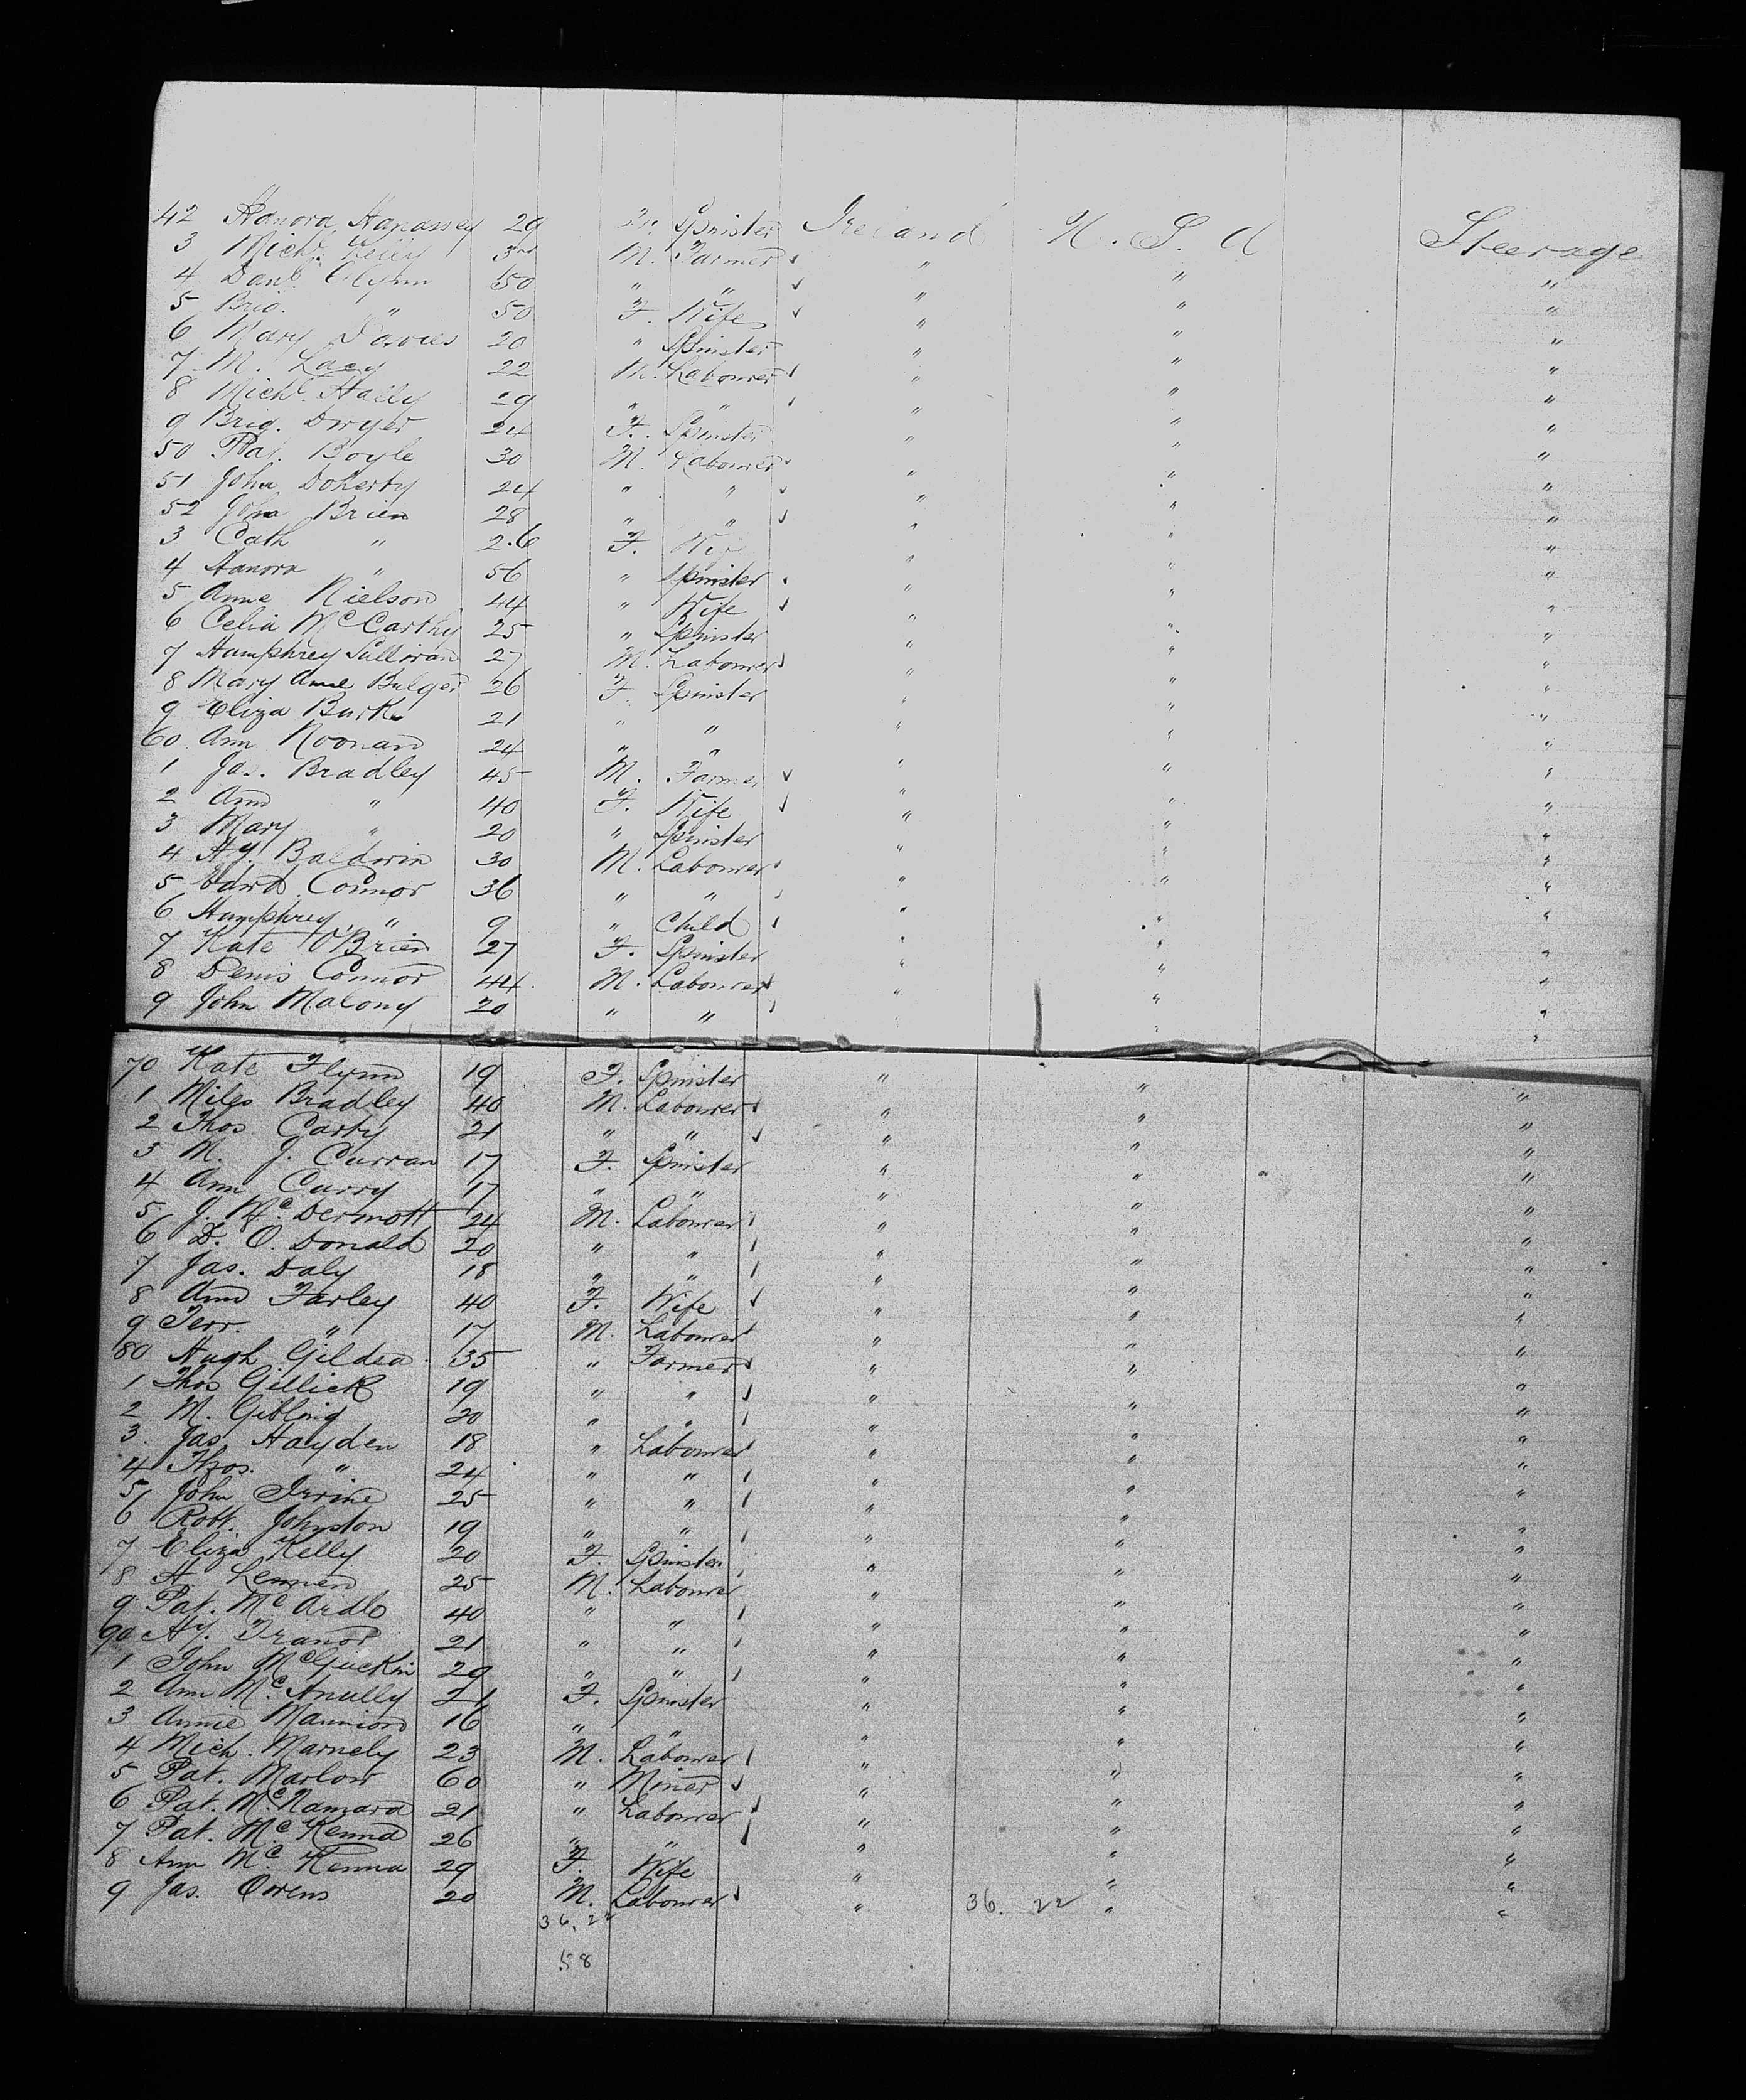 42 Hanora Hanassey 29 Fr. Spinster Ireland U. S. A Steerage
3 Michl. Kelly M. Farmer " " "
4 Danl. Glynn 50 " " " " "
5 Brid. " 50 F. Wife " " "
6 Mary Davies 20 " Spinster " " "
7 M. Lacy 22 M. Labourer " " "
8 Michl. Hally 29 " " " " "
9 Brig. Dwyer 24 F. Spinster " " "
50 Pat. Boyle 30 M. Labourer " " "
51 John Doherty 24 " " " " "
52 John Brien 28 " " " " "
3 Cath " 26 F. Wife " " "
4 Hanora " 56 " Spinster " " "
5 Anne Nielson 44 " Wife " " "
6 Celia McCarthy 25 " Spinster " " "
7 Humphrey Sullivan 27 M. Labourer " " "
8 Mary Anne Bulger 26 F. Spinster " " "
9 Eliza Burke 21 " " " " "
60 Ann Noonan 24 " " " " "
1 Jas. Bradley 45 M. Farmer " " "
2 Ann " 40 F. Wife " " "
3 Mary " 20 " Spinster " " "
4 Hy. Baldwin 30 M. Labourer " " "
5 Edwd. Connor 36 " " " " "
6 Humphrey " 9 " Child " " "
7 Kate O'Brien 27 F. Spinster " " "
8 Denis Connor 44 M. Labourer " " "
9 John Malony 20 " " " " "
70 Kate Flynn 19 F. Spinster " " "
1 Miles Bradley 40 M. Labourer " " "
2 Thos Carty 21 " " " " "
3 M. J. Curran 17 F. Spinster " " "
4 Ann Curry 17 " " " " "
5 J. McDermott 24 M. Labourer " " "
6 D. O. Donald 20 " " " " "
7 Jas. Daly 18 " " " " "
8 Ann Farley 40 F. Wife " " "
9 Terr. " 17 M. Labourer " " "
80 Hugh Gildea 35 " Farmer " " "
1 Thos Gillick 19 " " " " "
2 M. Gibling 20 " " " " "
3 Jas Hayden 18 " Labourer " " "
4 Thos. " 24 " " " " "
5 John Irvine 25 " " " " "
6 Robt. Johnston 19 " " " " "
7 Eliza Kelly 20 F. Spinster " " "
8 H. Lennen 25 M. Labourer " " "
9 Pat. McArdle 40 " " " " "
90 Hy. Tranor 21 " " " " "
1 John McGuckin 29 " " " " "
2 Ann McAnully 21 F. Spinster " " "
3 Annie Mannion 16 " " " " "
4 Mich. Marnely 23 M. Labourer " " "
5 Pat. Marlow 60 " Miner " " "
6 Pat. McNamara 21 " Labourer " " "
7 Pat. McKenna 26 " " " " "
8 Ann McKenna 29 F. Wife " " "
9 Jas. Owens 20 M. Labourer " 36. 22 " "
36. 22
58